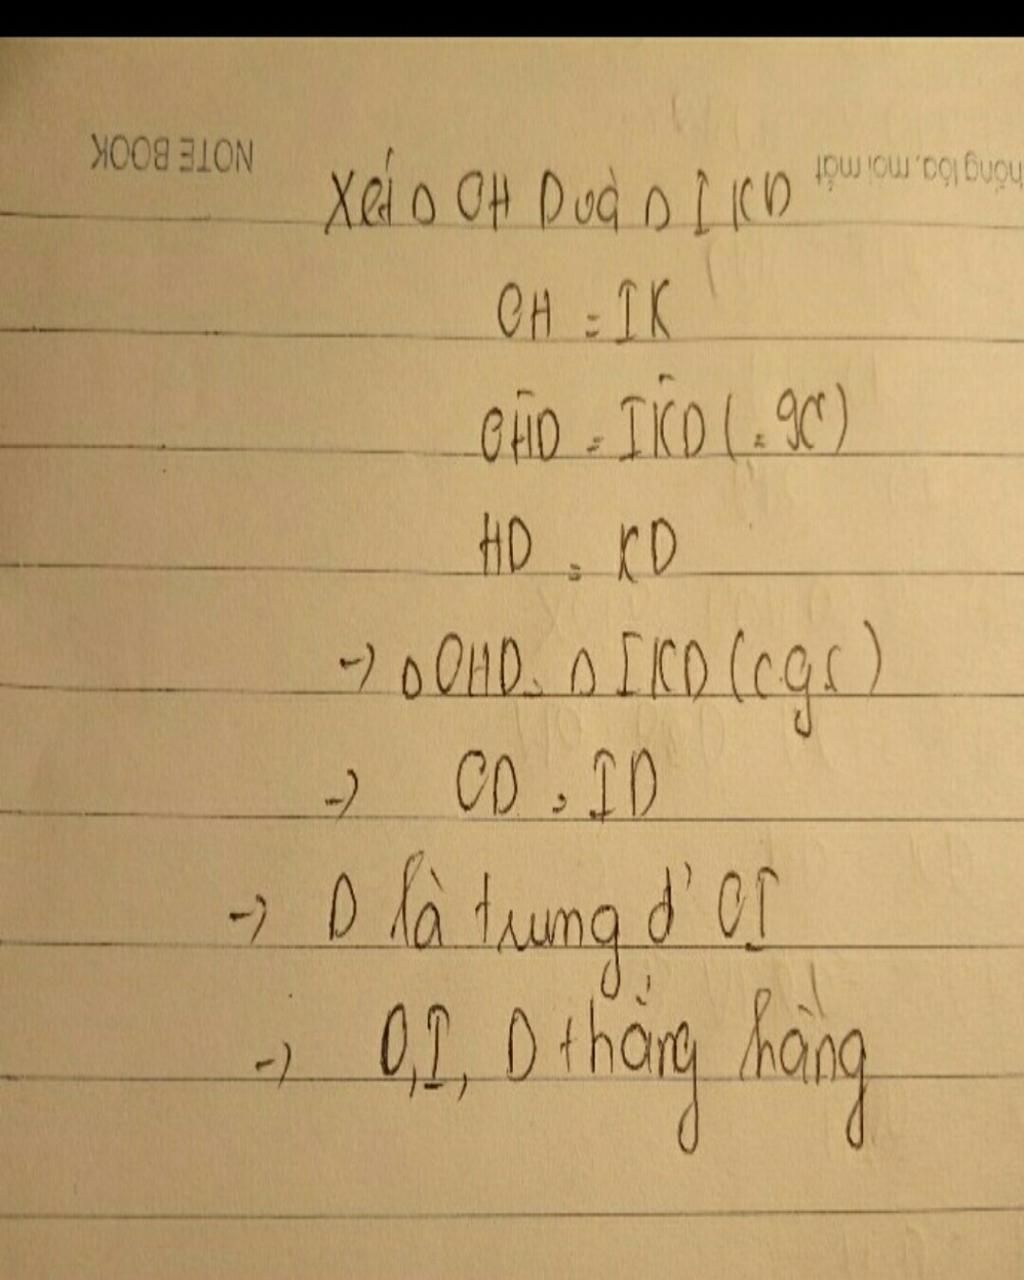 NOTE BOOK
hống lóa, mỏi mắt
Xét Δ OHD và Δ IKD
OH = IK
OĤD = IK̂D (= gt)
HD = KD
→ Δ OHD = Δ IKD (cgc)
→ OD = ID
→ D là trung đ' OI
→ O, I, D thẳng hàng